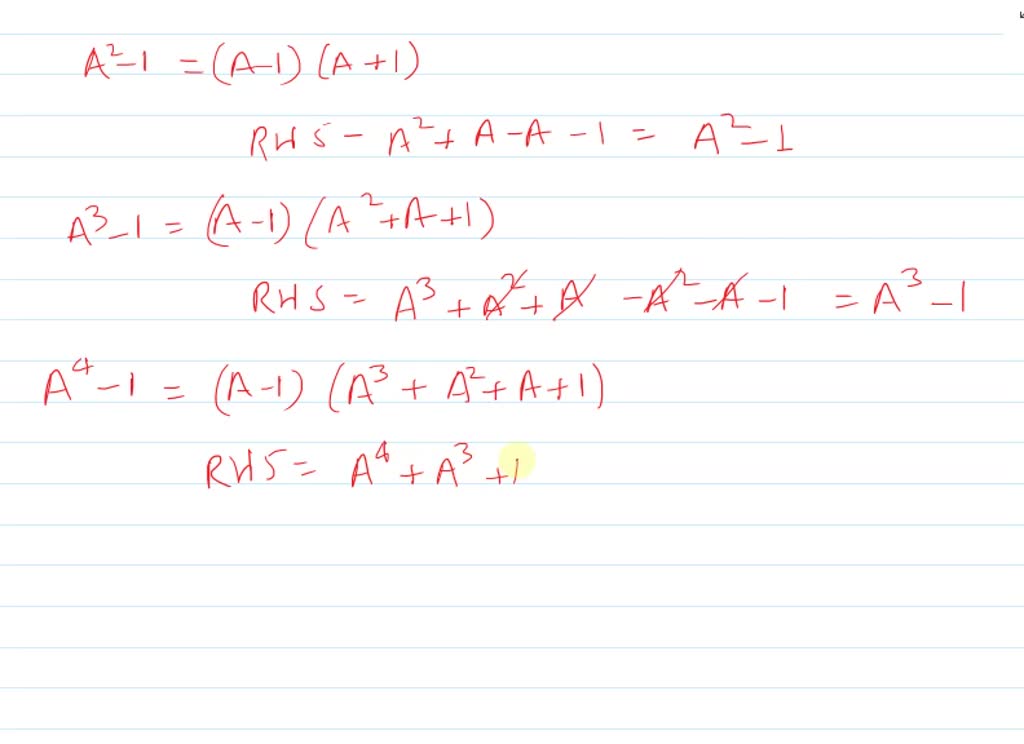 A²-1 = (A-1) (A+1)
RHS - A² + A - A - 1 = A² - 1
A³-1 = (A-1) (A²+A+1)
RHS = A³ + A² + A - A² - A - 1 = A³ - 1
A⁴-1 = (A-1) (A³ + A² + A + 1)
RHS = A⁴ + A³ + 1